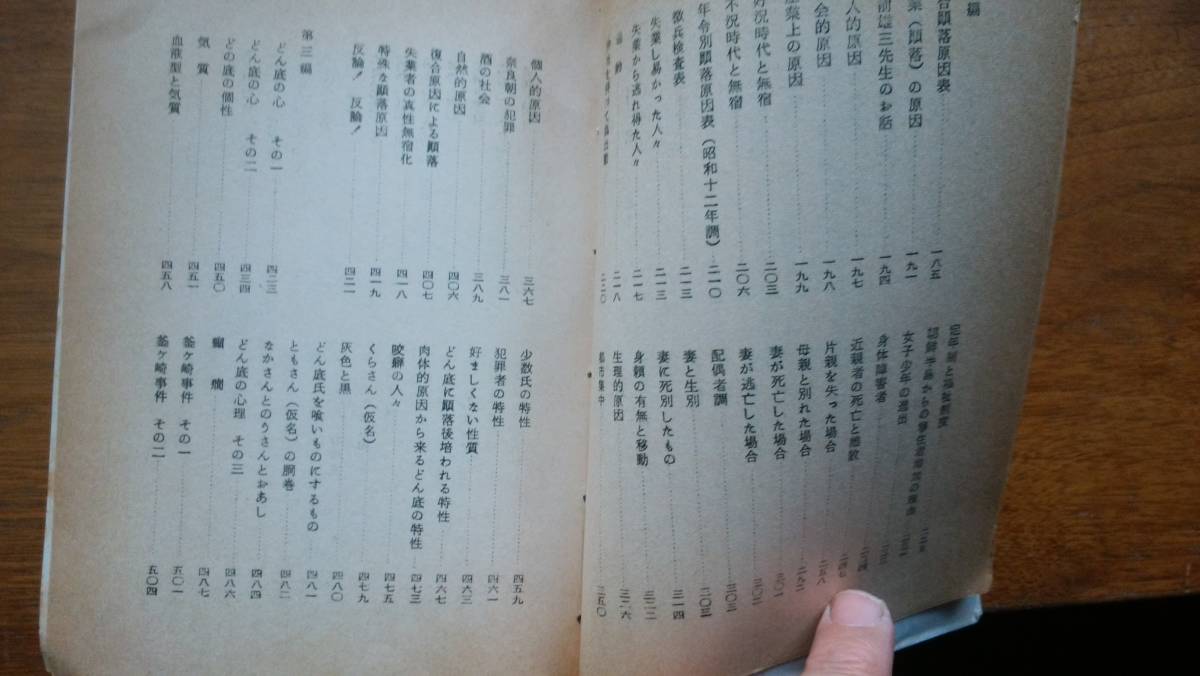 編
合顚落原因表 一八五
業(顚落)の原因 一九一
前雄三先生のお話 一九四
人的原因 一九七
会的原因 一九八
業上の原因 一九九
好況時代と無宿 二〇三
不況時代と無宿 二〇六
年令別顚落原因表(昭和十二年調) 二一〇
徴兵検査表 二一三
失業し易かった人々 二一三
失業から逃れ得た人々 二一七
二一八
二二〇
女子の少年の進出
身体障害者
近親者の死亡と離散
片親を失った場合 二五八
母親と別れた場合 二九二
妻が死亡した場合 三〇一
妻が逃亡した場合 三〇二
配偶者調 三〇三
妻と生別 二〇三
妻に死別したもの 三一四
身頼の有無と移動 三二二
生理的原因 三二六
都市集中 三五〇
個人的原因 三六七
奈良朝の犯罪 三八一
酒の社会 三八九
自然的原因 四〇六
復合原因による顚落 四〇七
失業者の真性無宿化 四一八
特殊な顚落原因 四一九
反論!反論! 四二一
第三編
どん底の心 その一 四二三
どん底の心 その二 四三四
どの底の個性 四五〇
気質 四五一
血液型と気質 四五八
少数氏の特性 四五九
犯罪者の特性 四六一
好ましくない性質 四六三
どん底に顚落後培われる特性 四六七
肉体的原因から来るどん底の特性 四七三
咬癖の人々 四七五
くらさん(仮名) 四七九
灰色と黒 四八〇
どん底氏を喰いものにするもの 四八一
ともさん(仮名)の胴巻 四八二
なかさんとのうさんとおあし 四八四
どん底の心理 その三 四八六
癲癇 四八七
釜ヶ崎事件 その一 五〇一
釜ヶ崎事件 その二 五〇四